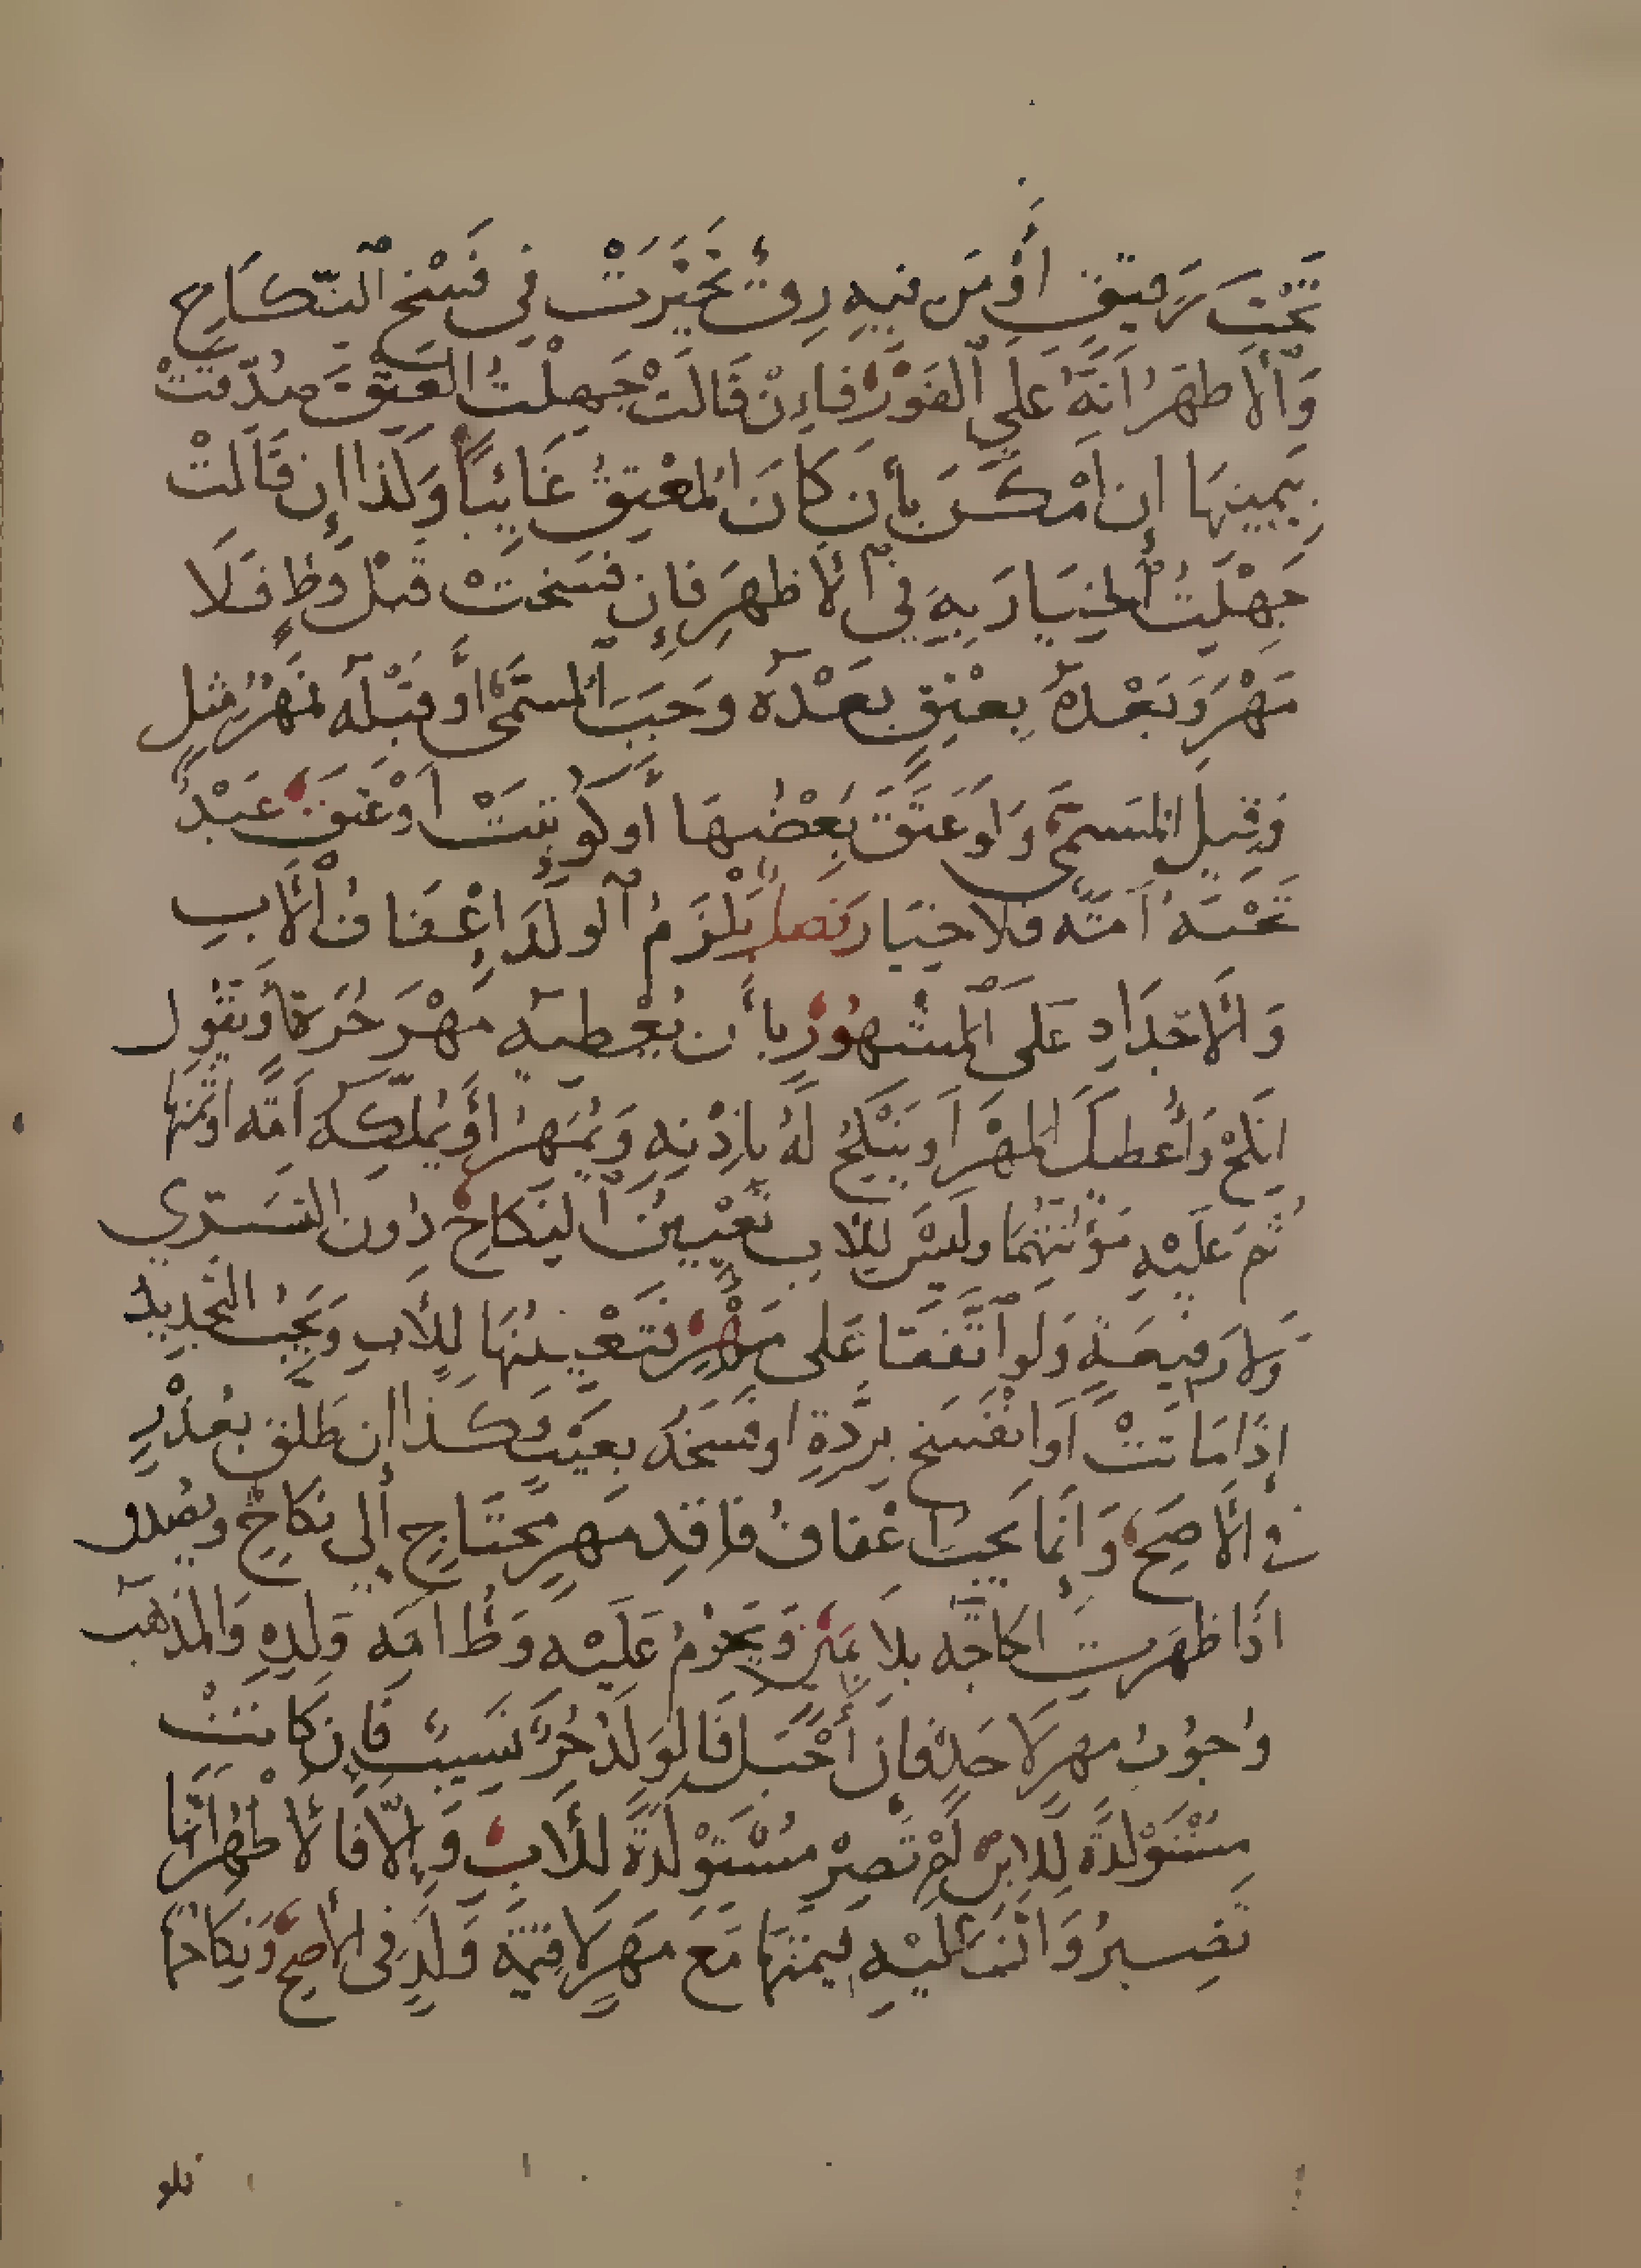 تَحْتَ رَقِيقٍ أَوْ مَن فِيهِ رِقٌّ تَخَيَّرَتْ فِي فَسْخِ ٱلنِّكَاحِ
وَٱلأَظْهَرُ أَنَّهُ عَلَى ٱلفَوْرِ فَإِنْ قَالَتْ جَهِلْتُ العِتْقَ صُدِّقَتْ
بِيَمِينِهَا إِن أَمْكَنَ بِأَن كَانَ المُعْتِقُ غَائِبًا وَكَذَا إِن قَالَتْ
جَهِلْتُ ٱلخِيَارَ بِهِ فِي ٱلأَظْهَرِ فَإِن فَسَخَتْ قَبْلَ وَطْءٍ فَلَا
مَهْرَ وَبَعْدَهُ بِعِتْقٍ بَعْدَهُ وَجَبَ ٱلمُسَمَّى أَوْ قَبْلَهُ فَمَهْرُ مِثْلٍ
وَقِيلَ المُسَمَّى وَلَوْ عَتَقَ بَعْضُهَا أَو كُوتِبَتْ أَوْ عَتَقَ عَبْدٌ
تَحْتَهُ أَمَةٌ فَلَا خِيَارَ فَصْلٌ يَلْزَمُ ٱلوَلَدَ إِعْفَافُ ٱلأَبِ
وَٱلأَجْدَادِ عَلَى ٱلمَشْهُورِ بِأَن يُعْطِيَهُ مَهْرَ حُرَّةٍ أَوْ يَقُولَ
انكِحْ وَأُعْطِيكَ المَهْرَ أَو يَنْكِحَ لَهُ بِإِذْنِهِ وَيُمْهِرُ أَوْ يُمَلِّكَهُ أَمَةً أَوْ ثَمَنَهَا
ثُمَّ عَلَيْهِ مَؤُنَتُهُمَا وَلَيْسَ لِلأَبِ تَعْيِينُ ٱلنِّكَاحِ دُونَ التَّسَرِّي
وَلَا رَفِيعَةٍ وَلَو ٱتَّفَقَا عَلَى مَهْرٍ فَتَعْيِينُهَا لِلأَبِ وَيَجِبُ التَّجْدِيدُ
إِذَا مَاتَتْ أَو انْفَسَخَ بِرِدَّةٍ أَو فَسَخَهُ بِعَيْبٍ وَكَذَا إِن طَلَّقَ بِعُذْرٍ
فِي الأَصَحِّ وَإِنَّمَا يَجِبُ إِعْفَافُ فَاقِدِ مَهْرٍ مُحْتَاجٍ إِلَى نِكَاحٍ وَيُصَدَّقُ
إِذَا ظَهَرَتِ الحَاجَةُ بِلَا يَمِينٍ وَيَحْرُمُ عَلَيْهِ وَطْءُ أَمَةِ وَلَدِهِ وَالمَذْهَبُ
وُجُوبُ مَهْرٍ لَا حَدٍّ فَإِن أَحْبَلَ فَالوَلَدُ حُرٌّ نَسِيبٌ فَإِن كَانَتْ
مُسْتَوْلَدَةً لِلِابْنِ لَمْ تَصِرْ مُسْتَوْلَدَةً لِلأَبِ وَإِلَّا فَالأَظْهَرُ أَنَّهَا
تَصِيرُ وَأَنَّ عَلَيْهِ قِيمَتَهَا مَعَ مَهْرٍ لَا قِيمَةَ وَلَدٍ فِى الأَصَحِّ وَنِكَاحُهَا